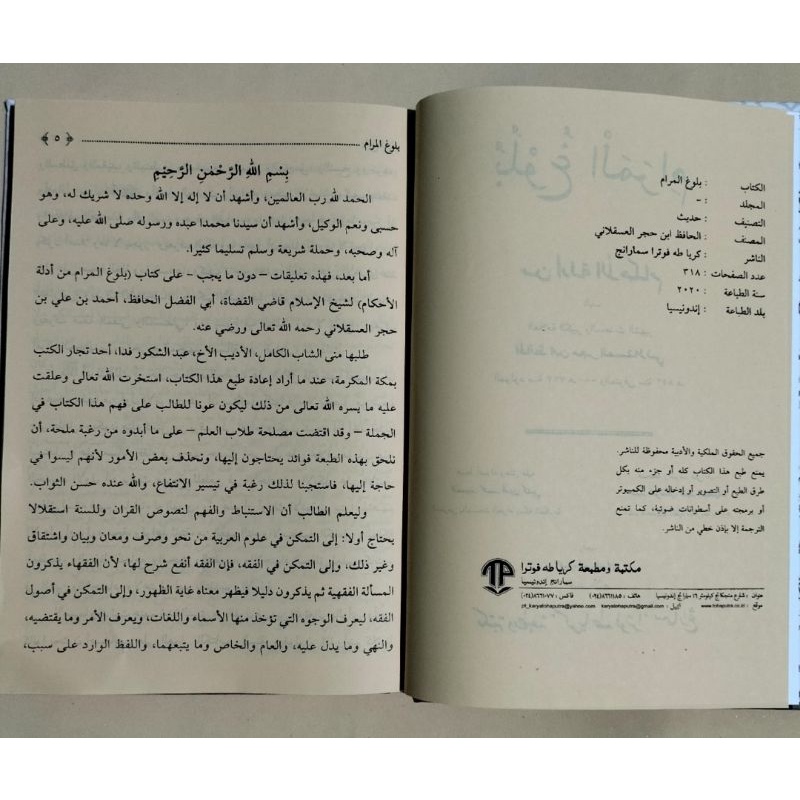 الكتاب : بلوغ المرام
المجلد : -
التصنيف : حديث
المصنف : الحافظ ابن حجر العسقلاني
الناشر : كريا طه فوترا سمارانج
عدد الصفحات : ٣١٨
سنة الطباعة : ٢٠٢٠
بلد الطباعة : إندونيسيا
جميع الحقوق الملكية والأدبية محفوظة للناشر.
يمنع طبع هذا الكتاب كله أو جزء منه بكل
طرق الطبع أو التصوير أو إدخاله على الكمبيوتر
أو برمجته على أسطوانات ضوئية، كما تمنع
الترجمة إلا بإذن خطي من الناشر.
مكتبة ومطبعة كرياطه فوترا
سمارانج إندونيسيا
هاتف: (٠٢٤)٨٦٦١١٨٥ فاكس: (٠٢٤)٨٦٦١٠٧٧
موقع : www.tohaputra.co.id karyatohaputra@gmail.com pt_karyatohaputra@yahoo.com
بلوغ المرام ﴿ ٥ ﴾
بِسْمِ اللهِ الرَّحْمٰنِ الرَّحِيْمِ
الحمد لله رب العالمين، وأشهد أن لا إله إلا الله وحده لا شريك له، وهو
حسبى ونعم الوكيل، وأشهد أن سيدنا محمدا عبده ورسوله صلى الله عليه، وعلى
آله وصحبه، وحملة شريعة وسلم تسليما كثيرا.
أما بعد، فهذه تعليقات – دون ما يجب – على كتاب (بلوغ المرام من أدلة
الأحكام) لشيخ الإسلام قاضي القضاة، أبي الفضل الحافظ، أحمد بن علي بن
حجر العسقلاني رحمه الله تعالى ورضي عنه.
طلبها منى الشاب الكامل، الأديب الأخ، عبد الشكور فدا، أحد تجار الكتب
بمكة المكرمة، عند ما أراد إعادة طبع هذا الكتاب، استخرت الله تعالى وعلقت
عليه ما يسره الله تعالى من ذلك ليكون عونا للطالب على فهم هذا الكتاب في
الجملة – وقد اقتضت مصلحة طلاب العلم – على ما أبدوه من رغبة ملحة، أن
نلحق بهذه الطبعة فوائد يحتاجون إليها، ونحذف بعض الأمور لأنهم ليسوا في
حاجة إليها، فاستجبنا لذلك رغبة في تيسير الانتفاع، والله عنده حسن الثواب.
وليعلم الطالب أن الاستنباط والفهم لنصوص القران وللسنة استقلالا
يحتاج أولا: إلى التمكن في علوم العربية من نحو وصرف ومعان وبيان واشتقاق
وغير ذلك، وإلى التمكن في الفقه، فإن الفقه أنفع شرح لها، لأن الفقهاء يذكرون
المسألة الفقهية ثم يذكرون دليلا فيظهر معناه غاية الظهور، وإلى التمكن في أصول
الفقه، ليعرف الوجوه التي تؤخذ منها الأسماء واللغات، ويعرف الأمر وما يقتضيه،
والنهي وما يدل عليه، والعام والخاص وما يتبعهما، واللفظ الوارد على سبب،